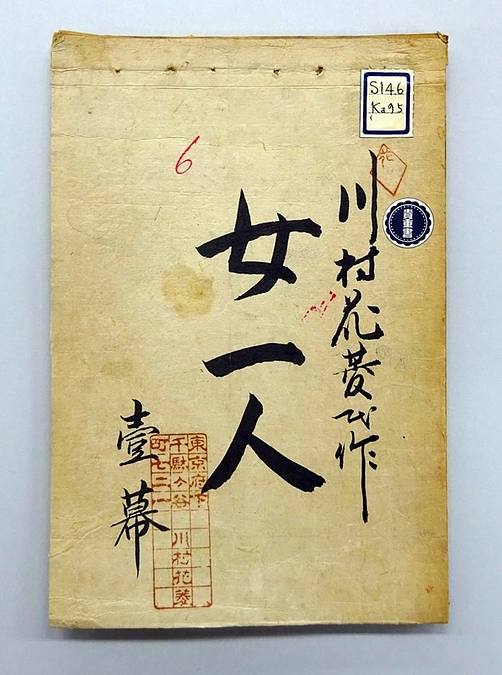 S14.6
Ka95
花
貴重書
川村花菱 作
6
女一人
壹幕
東京府下
千駄ヶ谷 川村花菱
町七二一